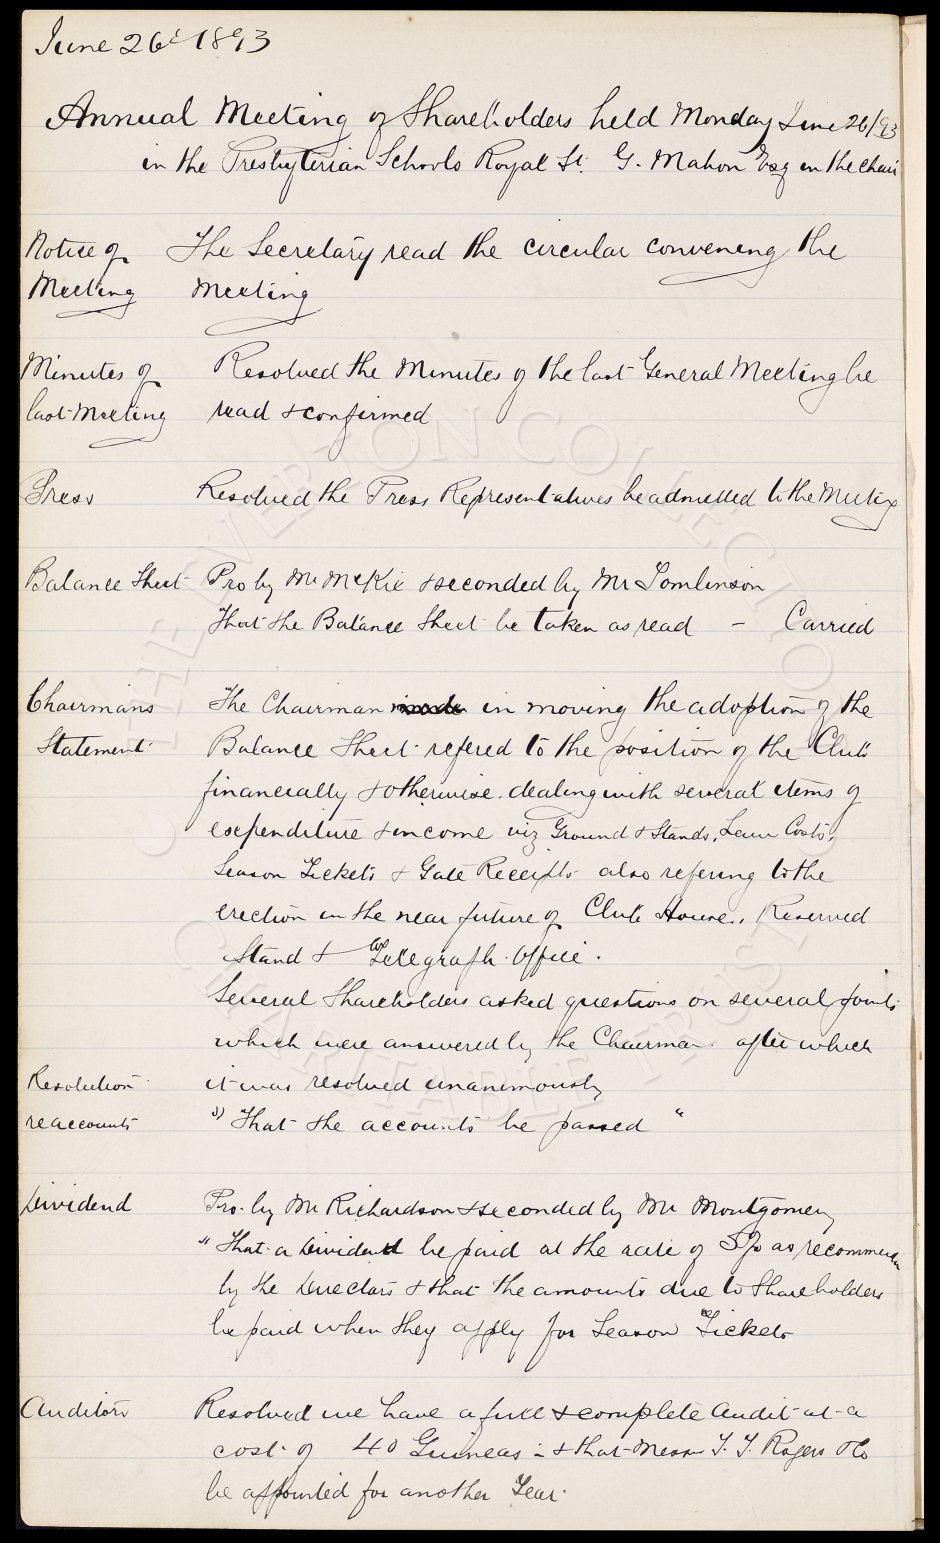 June 26th 1893
Annual Meeting of Shareholders held Monday June 26/93
in the Presbyterian Schools Royal St. G. Mahon Esq in the Chair
Notice of The Secretary read the circular convening the
Meeting meeting
Minutes of Resolved the Minutes of the last General Meeting be
last Meeting read & confirmed
Press Resolved the Press Representatives be admitted to the Meeting
Balance Sheet Pro by Mr McKie & seconded by Mr Tomlinson
That the Balance Sheet be taken as read - Carried
Chairmans The Chairman made in moving the adoption of the
Statement Balance Sheet refered to the position of the Club
financially & otherwise. dealing with several items of
expenditure & income viz Ground & Stands, Law Costs,
Season Tickets & Gate Receipts also refering to the
erection in the near future of Club House, Reserved
Stand & Telegraph Office.
Several Shareholders asked questions on several points
which were answered by the Chairman after which
Resolution it was resolved unanimously
re accounts "That the accounts be passed"
Dividend Pro. by Mr Richardson & seconded by Mr Montgomery
"That a Dividend be paid at the rate of 5% as recommended
by the Directors & that the amounts due to Shareholders
be paid when they apply for Season Tickets
Auditors Resolved we have a full & complete Audit at a
cost of 40 Guineas - & that Messrs T. T. Rogers & Co
be appointed for another Year.
THE EVERTON COLLECTION
CHARITABLE TRUST